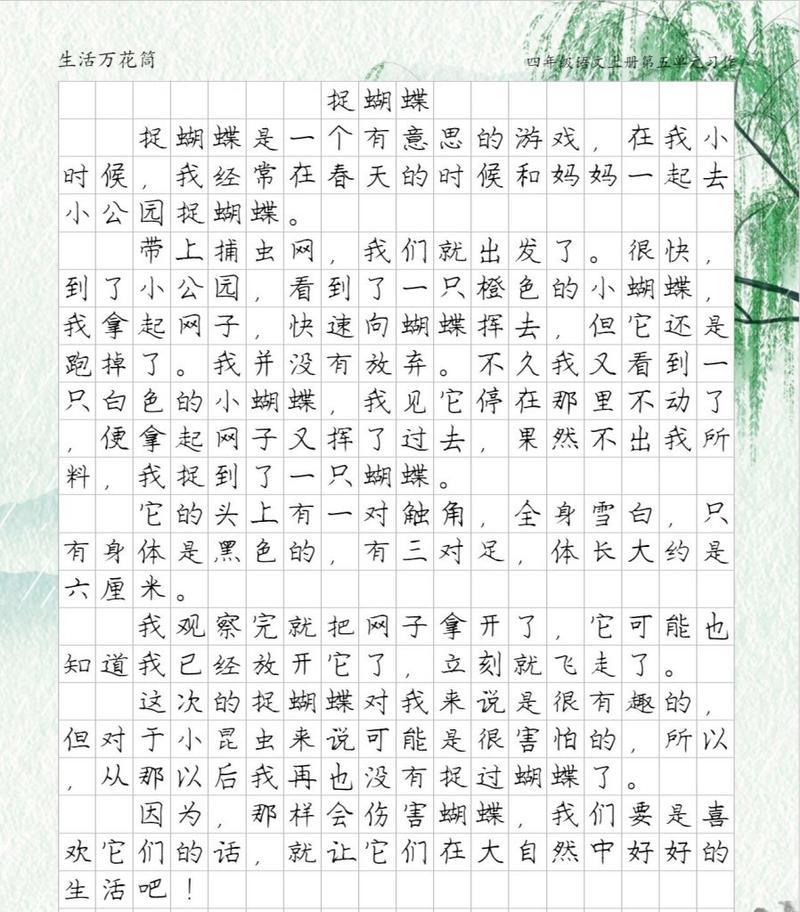 生活万花筒
四年级语文上册第五单元习作
捉蝴蝶
捉蝴蝶是一个有意思的游戏，在我小
时候，我经常在春天的时候和妈妈一起去
小公园捉蝴蝶。
带上捕虫网，我们就出发了。很快，
到了小公园，看到了一只橙色的小蝴蝶，
我拿起网子，快速向蝴蝶挥去，但它还是
跑掉了。我并没有放弃。不久我又看到一
只白色的小蝴蝶，我见它停在那里不动了
，便拿起网子又挥了过去，果然不出我所
料，我捉到了一只蝴蝶。
它的头上有一对触角，全身雪白，只
有身体是黑色的，有三对足，体长大约是
六厘米。
我观察完就把网子拿开了，它可能也
知道我已经放开它了，立刻就飞走了。
这次的捉蝴蝶对我来说是很有趣的，
但对于小昆虫来说可能是很害怕的，所以
，从那以后我再也没有捉过蝴蝶了。
因为，那样会伤害蝴蝶，我们要是喜
欢它们的话，就让它们在大自然中好好的
生活吧！